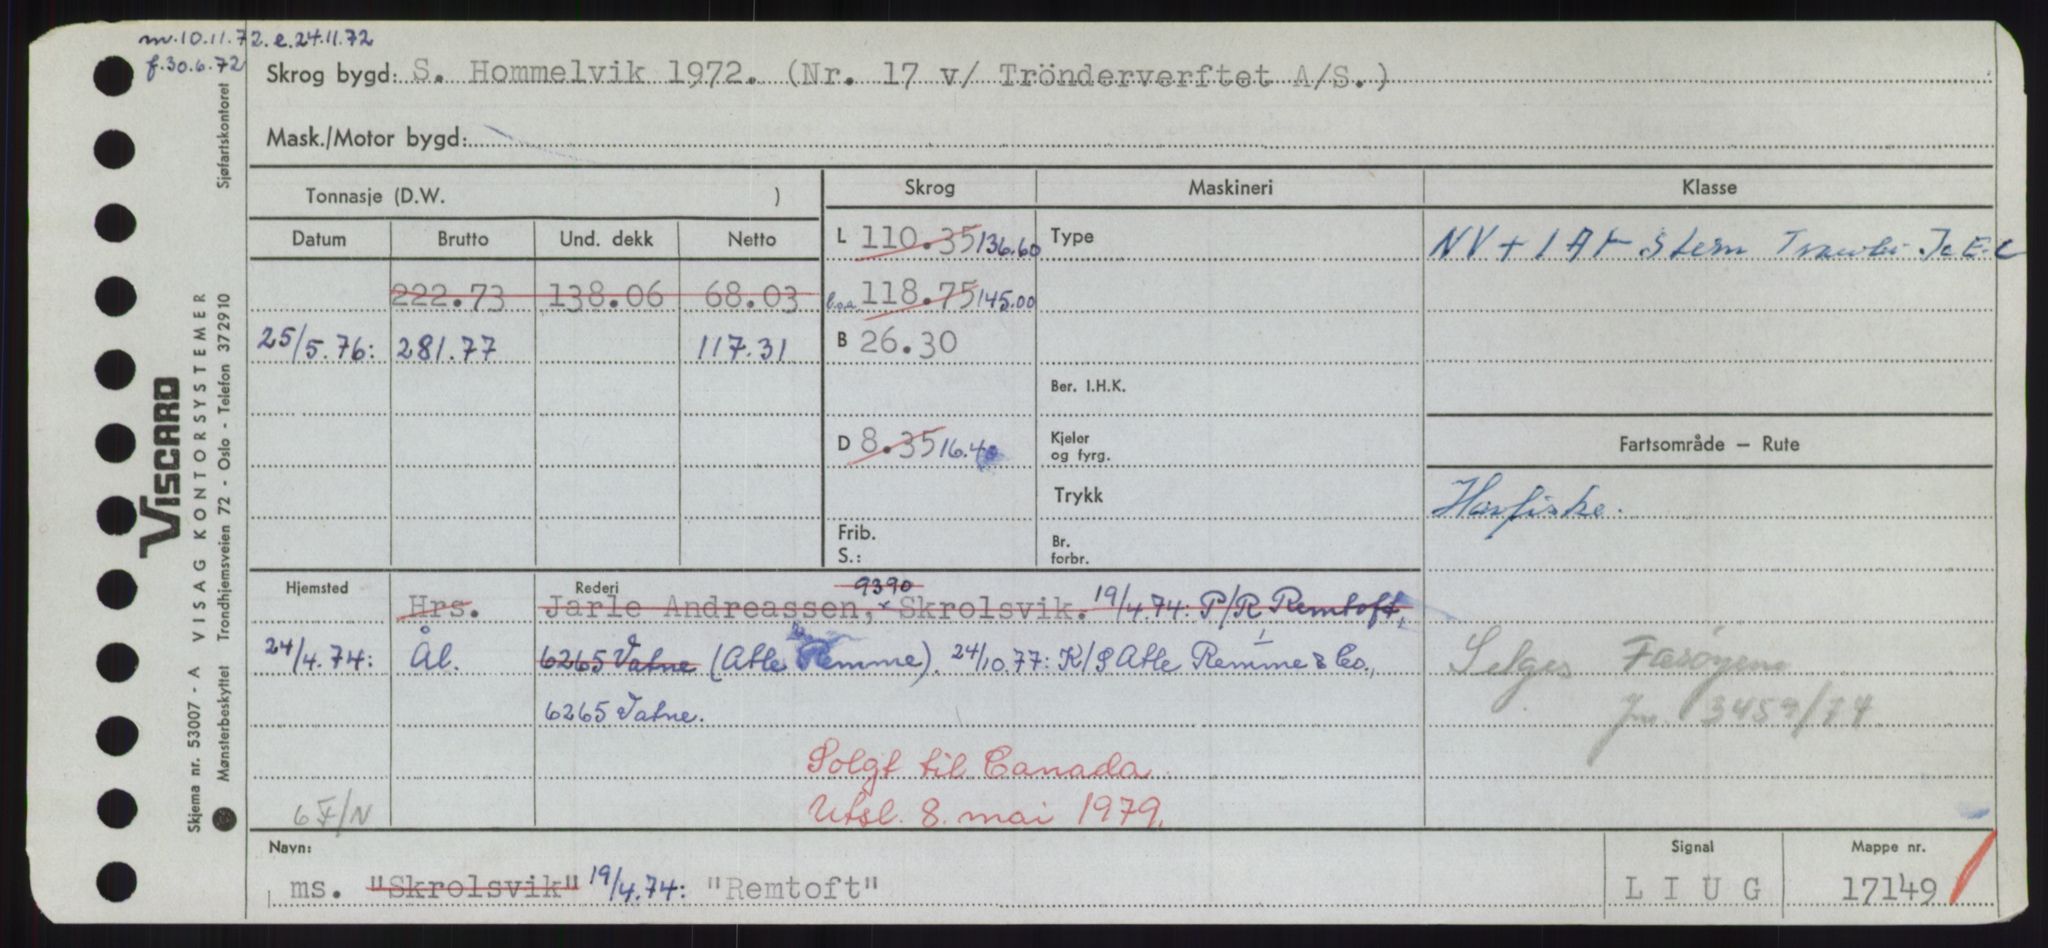 m.10.11.72. e.24.11.72
f.30.6.72
Skrog bygd: S. Hommelvik 1972. (Nr. 17 v/ Trönderverftet A/S.)
Mask./Motor bygd:
Tonnasje (D.W. )
Skrog Maskineri Klasse
Datum Brutto Und. dekk Netto
L 110.35 136.60 Type NV + 1A1 Stern Trawler Ic E-C
222.73 138.06 68.03 l.o.a. 118.75 145.00
25/5.76: 281.77 117.31 B 26.30
Ber. I.H.K.
D 8.35 16.40 Kjeler og fyrg. Fartsområde – Rute
Trykk Havfiske.
Frib.
S.: Br. forbr.
Hjemsted Rederi 9390
Hrs. Jarle Andreassen, Skrolsvik. 19/4.74: P/R Remtoft,
24/4.74: Ål. 6265 Vatne (Atle Remme). 24/10.77: K/S Atle Remme & Co., Selges Færøyene
6265 Vatne. Jnr. 3459/74
Solgt til Canada
6 F/N Utsl. 8. mai 1979.
Navn: Signal Mappe nr.
ms. "Skrolsvik" 19/4.74: "Remtoft" L I U G 17149
Sjøfartskontoret
VISCARD
VISAG KONTORSYSTEMER
Trondhjemsveien 72 - Oslo - Telefon 372910
Skjema nr. 53007 - A
Mønsterbeskyttet